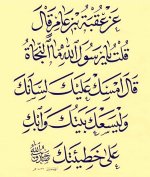 عن عقبة بن عامر قال
قلت يا رسول الله ما النجاة
قال امسك عليك لسانك
وليسعك بيتك وابك
على خطيئتك